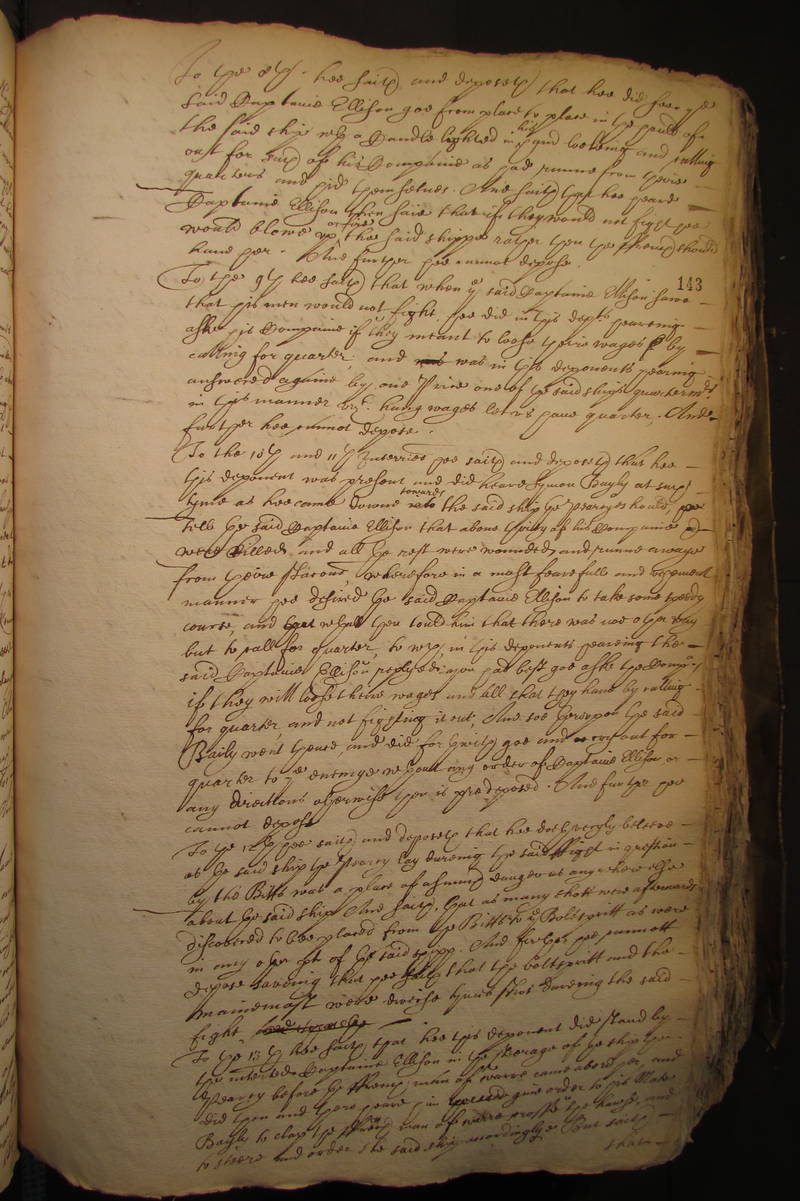 To the 8th hee saith and deposeth that hee did see the
said Captaine Ellison goe from place to place in the hould of
the said ship with a Candle lighted in his hand looking and calling
out for such of his Companie as had runne from theire
quarters and hid themselves. And saith that hee heard
Captaine Ellison then saie that if they would not fight hee
would blowe up or fire the said shippe rather then the ffrench should
have her. And further hee cannot depose.
143
To the 9th hee saith that when the said Captaine Ellison sawe
that his men would not fight, hee did in this depts heareing
aske his Companie if they meant to loose theire wages by
calling for quarter, and was in this deponents heareing
answered againe by one Price one of the said ships quartermrs
in this manner vizt. hang wages let us have quarter, And
further hee cannot depose.
To the 10th and 11th Interries hee saith and deposeth that hee
this deponent was present and did heare Symon Bayly at such
tyme as hee came downe towards the said ship the Pearcyes hould,
tell the said Captaine Ellison that above thirty of his Companie
were killed, and all the rest were wounded and runne awaye
from theire stacons, wherefore in a most fearefull and
manner hee desired the said Captaine Ellison to take some speedy
course, and then tould him that there was noe other way
but to call for quarter, to wch, in this deponents heareing the
said Captaine Ellison replyed, you had best goe aske the Company
if they will loose theire wages and all that they have by calling
for quarter, and not fighting it out, And soe thereupon the said
Baily went thence, and did forthwith goe and cry out for
quarter to the enemye without any order of Captaine Ellison or
any directions otherwise then is predeposed. And further hee
cannot depose
To the 12th hee saith and deposeth that hee doth veryly beleeve
as the said ship the Pearcy lay dureing the said ffight in question
by the Bitts was a place of as much danger as any where else
about the said ship And saith, that as many shott were afterwards
discovered to bee placed from the Bitts to the Boltspritt as were
in any other pt of the said shipp. And further hee cannott
depose saveing that hee saith that the boltspritt and the
mainemast were twice shot dureing the said
fight
To the 13th hee saith, that hee this deponent did stand by
the interrate Captaine Ellison in the steerage of the ship the
Pearcy before the ffrench man of warre came abord her, and
did then and there heare him give order to his Mate
Bayly to clap the ffrench man of warre the hawse, and
to steere and order the said ship accordingly. But saith
that